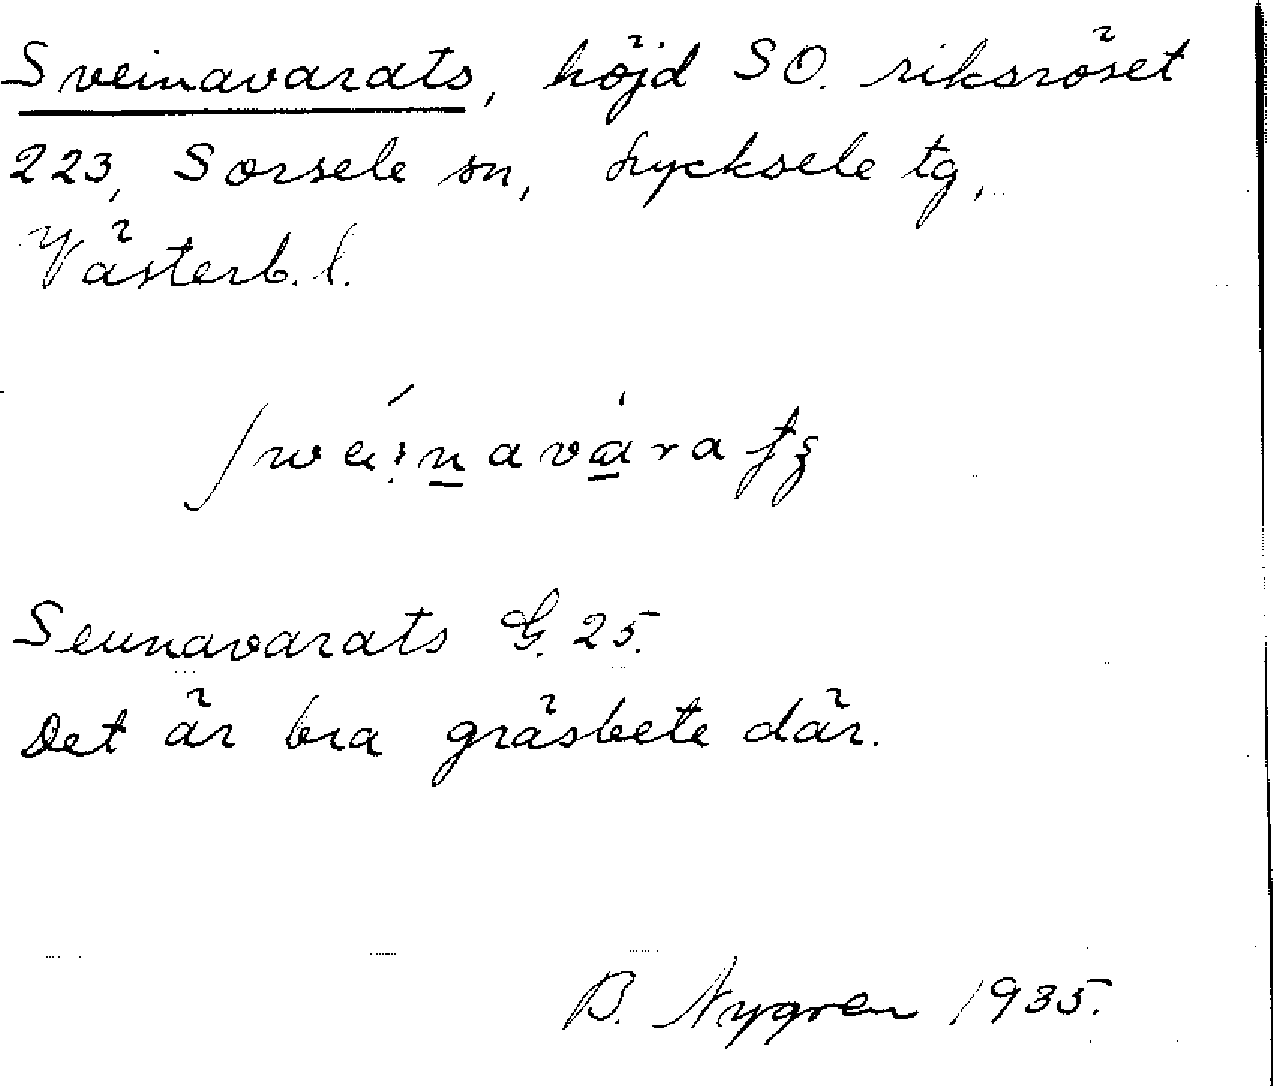 Sveinavarats, höjd SO. riksröset
223, Sorsele sn, Lycksele tg,
Västerb. l.
Seunavarats G. 25.
Det är bra gräsbete där.
B. Nygren 1935.